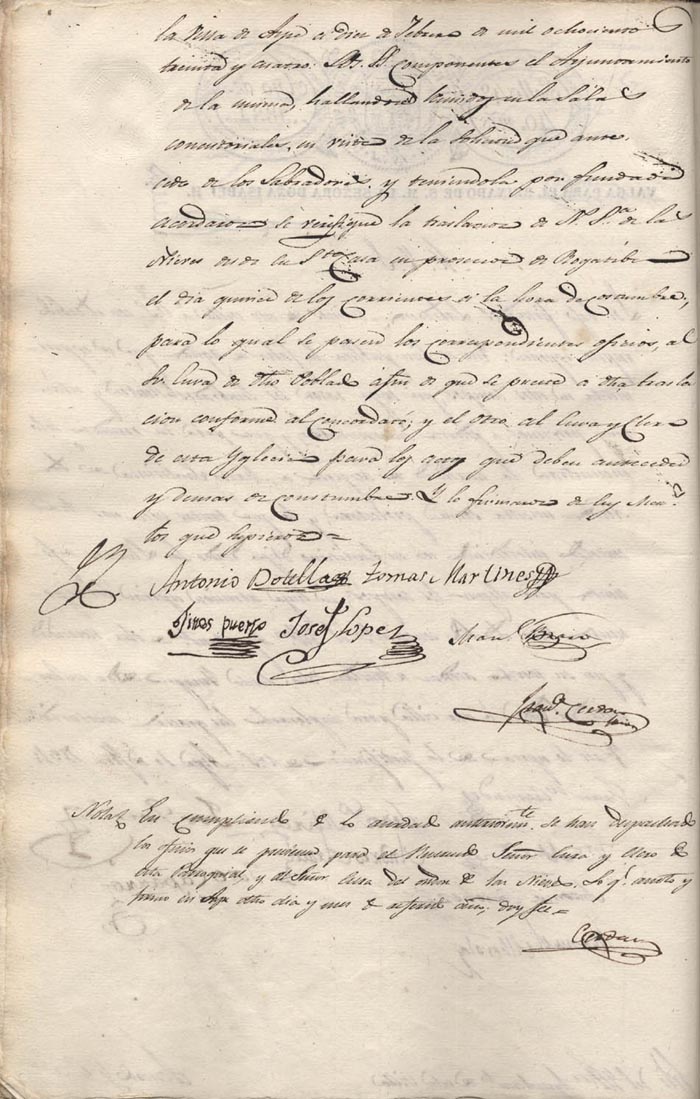 la Villa de Aspe a diez de Febrero de mil ochociento
treinta y cuatro: Los S.S. componentes el Ayuntamiento
de la misma, hallandose reunidos en la Sala
consistorial, en vista de la solicitud que ante
cede de los Labradores y teniendola por fundada
acordaron se verifique la traslacion de N.ª S.ra de la
Nieves desde su S.ta Casa en procesion de Rogativa
el dia quince de los corrientes a la hora de costumbre,
para lo qual se pasen los correspondientes oficios, al
Sr. Cura de dho Poblad a fin de que se preste a dha trasla
cion conforme al Concordato; y el otro al Cura y Clero
de esta Yglecia para los actos que deben anteceder
y demas de constumbre. Y lo firmaron de los
que supieron =
Antonio Botella Tomas Martines
Gines puerto Josef Lopez
Man.l
Fran.co Cerdan
Nota En cumplimto de lo acordado anteriormte se han despachado
los oficios que se previene para el Reverendo Señor Cura y Clero de
esta Parroquial, y al Señor Cura del Hondon de las Nieves, Lo q.e anoto y
firmo en Aspe dho dia y mes de referido año; doy fee =
Cerdan
VALGA PARA EL REYNADO DE S. M. LA SEÑORA DOÑA ISABEL II